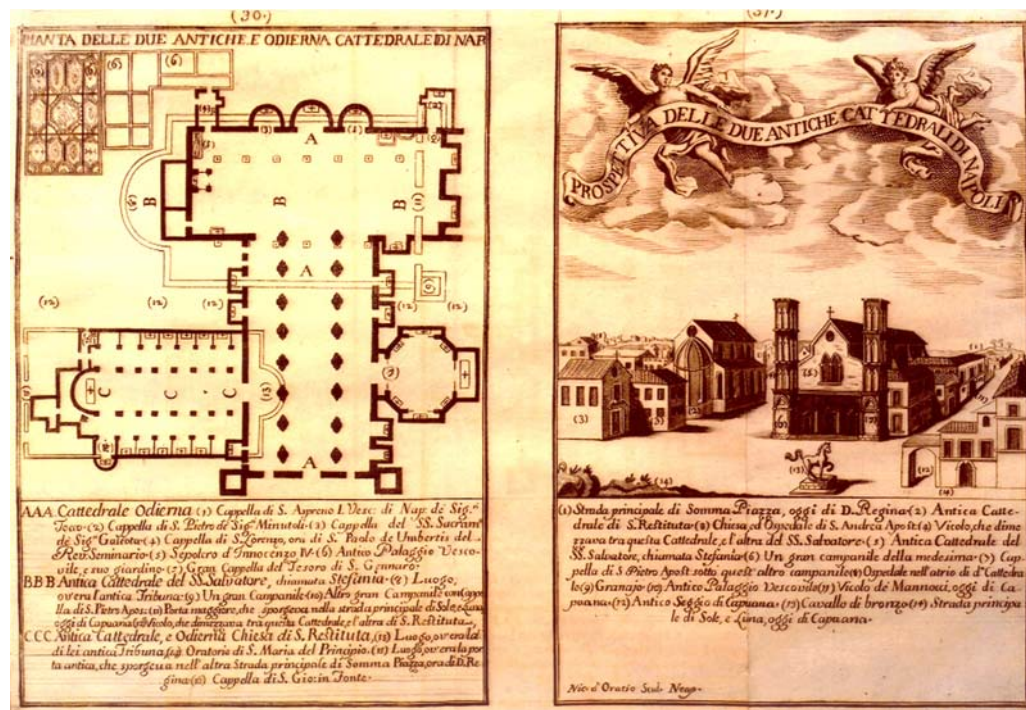 (30.)
PIANTA DELLE DUE ANTICHE, E ODIERNA CATTEDRALE DI NAP
(6) (6) (6)
(4) (3) (1) (2)
A
(5)
B B B
(8) (11)
A
(9)
(12) (12) (12) (12) (12)
C C C
(13)
(7)
A
AAA Cattedrale Odierna (1) Cappella di S. Aspreno I. Vesc: di Nap: de Sig.ri
Tocco (2) Cappella di S. Pietro de Sig.ri Minutoli (3) Cappella del SS. Sacram.
de Sig.ri Galeota (4) Cappella di S. Lorenzo, ora di S. Paolo de Umbertis del
Rev. Seminario (5) Sepolcro d'Innocenzo IV. (6) Antico Palaggio Vesco-
vile, e suo giardino (7) Gran Cappella del Tesoro di S. Gennaro
BBB Antica Cattedrale del SS. Salvatore, chiamata Stefania (8) Luogo,
overa l'antica Tribuna (9) Un gran Campanile (10) Altro gran Campanile con Cappel-
la di S. Pietro Apos: (11) Porta maggiore, che sporgeva nella strada principale di Sole, e Luna
oggi di Capuana (12) Vicolo, che dimezzava tra questa Cattedrale, e l'altra di S. Restituta
CCC Antica Cattedrale, e Odierna Chiesa di S. Restituta, (13) Luogo, ov'era la
di lei antica Tribuna (14) Oratorio di S. Maria del Principio (15) Luogo, ov'era la por
ta antica, che sporgeva nell'altra Strada principale di Somma Piazza, ora di D. Re
gina (16) Cappella di S. Gio: in Fonte
(31.)
PROSPETTIVA DELLE DUE ANTICHE CATTEDRALI DI NAPOLI
(1)
(3) (3) (2) (5) (11)
(6) (7) (12)
(13) (14) (14)
(1) Strada principale di Somma Piazza, oggi di D. Regina (2) Antica Catte-
drale di S. Restituta (3) Chiesa, ed Ospedale di S. Andrea Apost: (4) Vicolo, che dime
zzava tra questa Cattedrale, e l'altra del SS. Salvatore (5) Antica Cattedrale del
SS. Salvatore, chiamata Stefania (6) Un gran campanile della medesima (7) Cap
pella di S. Pietro Apost: sotto quest'altro campanile (8) Ospedale nell'atrio di d.ta Cattedra
le (9) Granajo (10) Antico Palaggio Vescovile (11) Vicolo de Mannocci, oggi di Ca
puana (12) Antico Seggio di Capuana (13) Cavallo di bronzo (14) Strada principa
le di Sole, e Luna, oggi di Capuana
Nic. d'Oratio Scul. Neap.